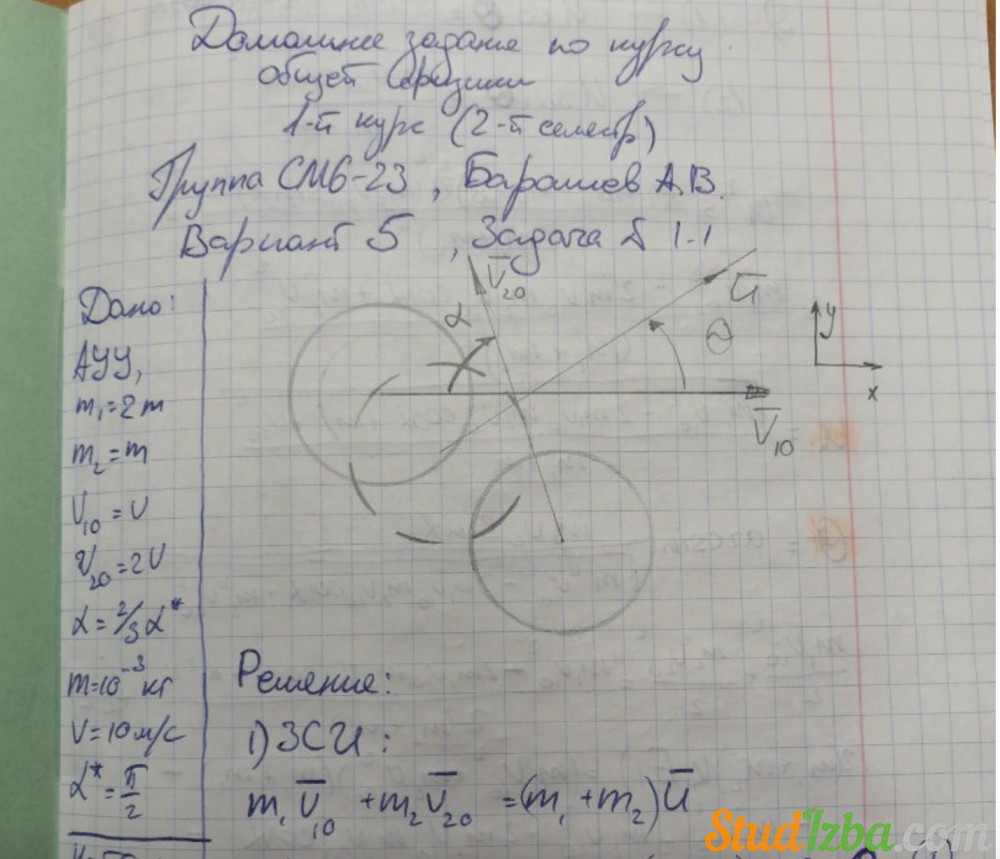 Домашнее задание по курсу
общей физики
1-й курс (2-й семестр)
Группа СМ6-23, Барашев А.В.
Вариант 5, Задача № 1.1
Дано:
АУУ,
m₁=2m
m₂=m
V₁₀=V
V₂₀=2V
α=2/3α*
m=10⁻³ кг
V=10 м/с
α*=π/2
V̅₂₀
α
U̅
Θ
V̅₁₀
y
x
Решение:
1) ЗСИ:
m₁V̅₁₀+m₂V̅₂₀=(m₁+m₂)U̅
StudIzba.com